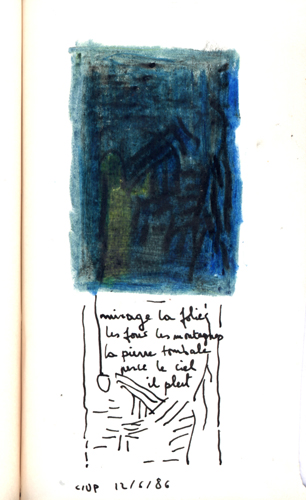 mirage la folie
les fous les montagnes
la pierre tombale
perce le ciel
il pleut
CIUP 12/6/86